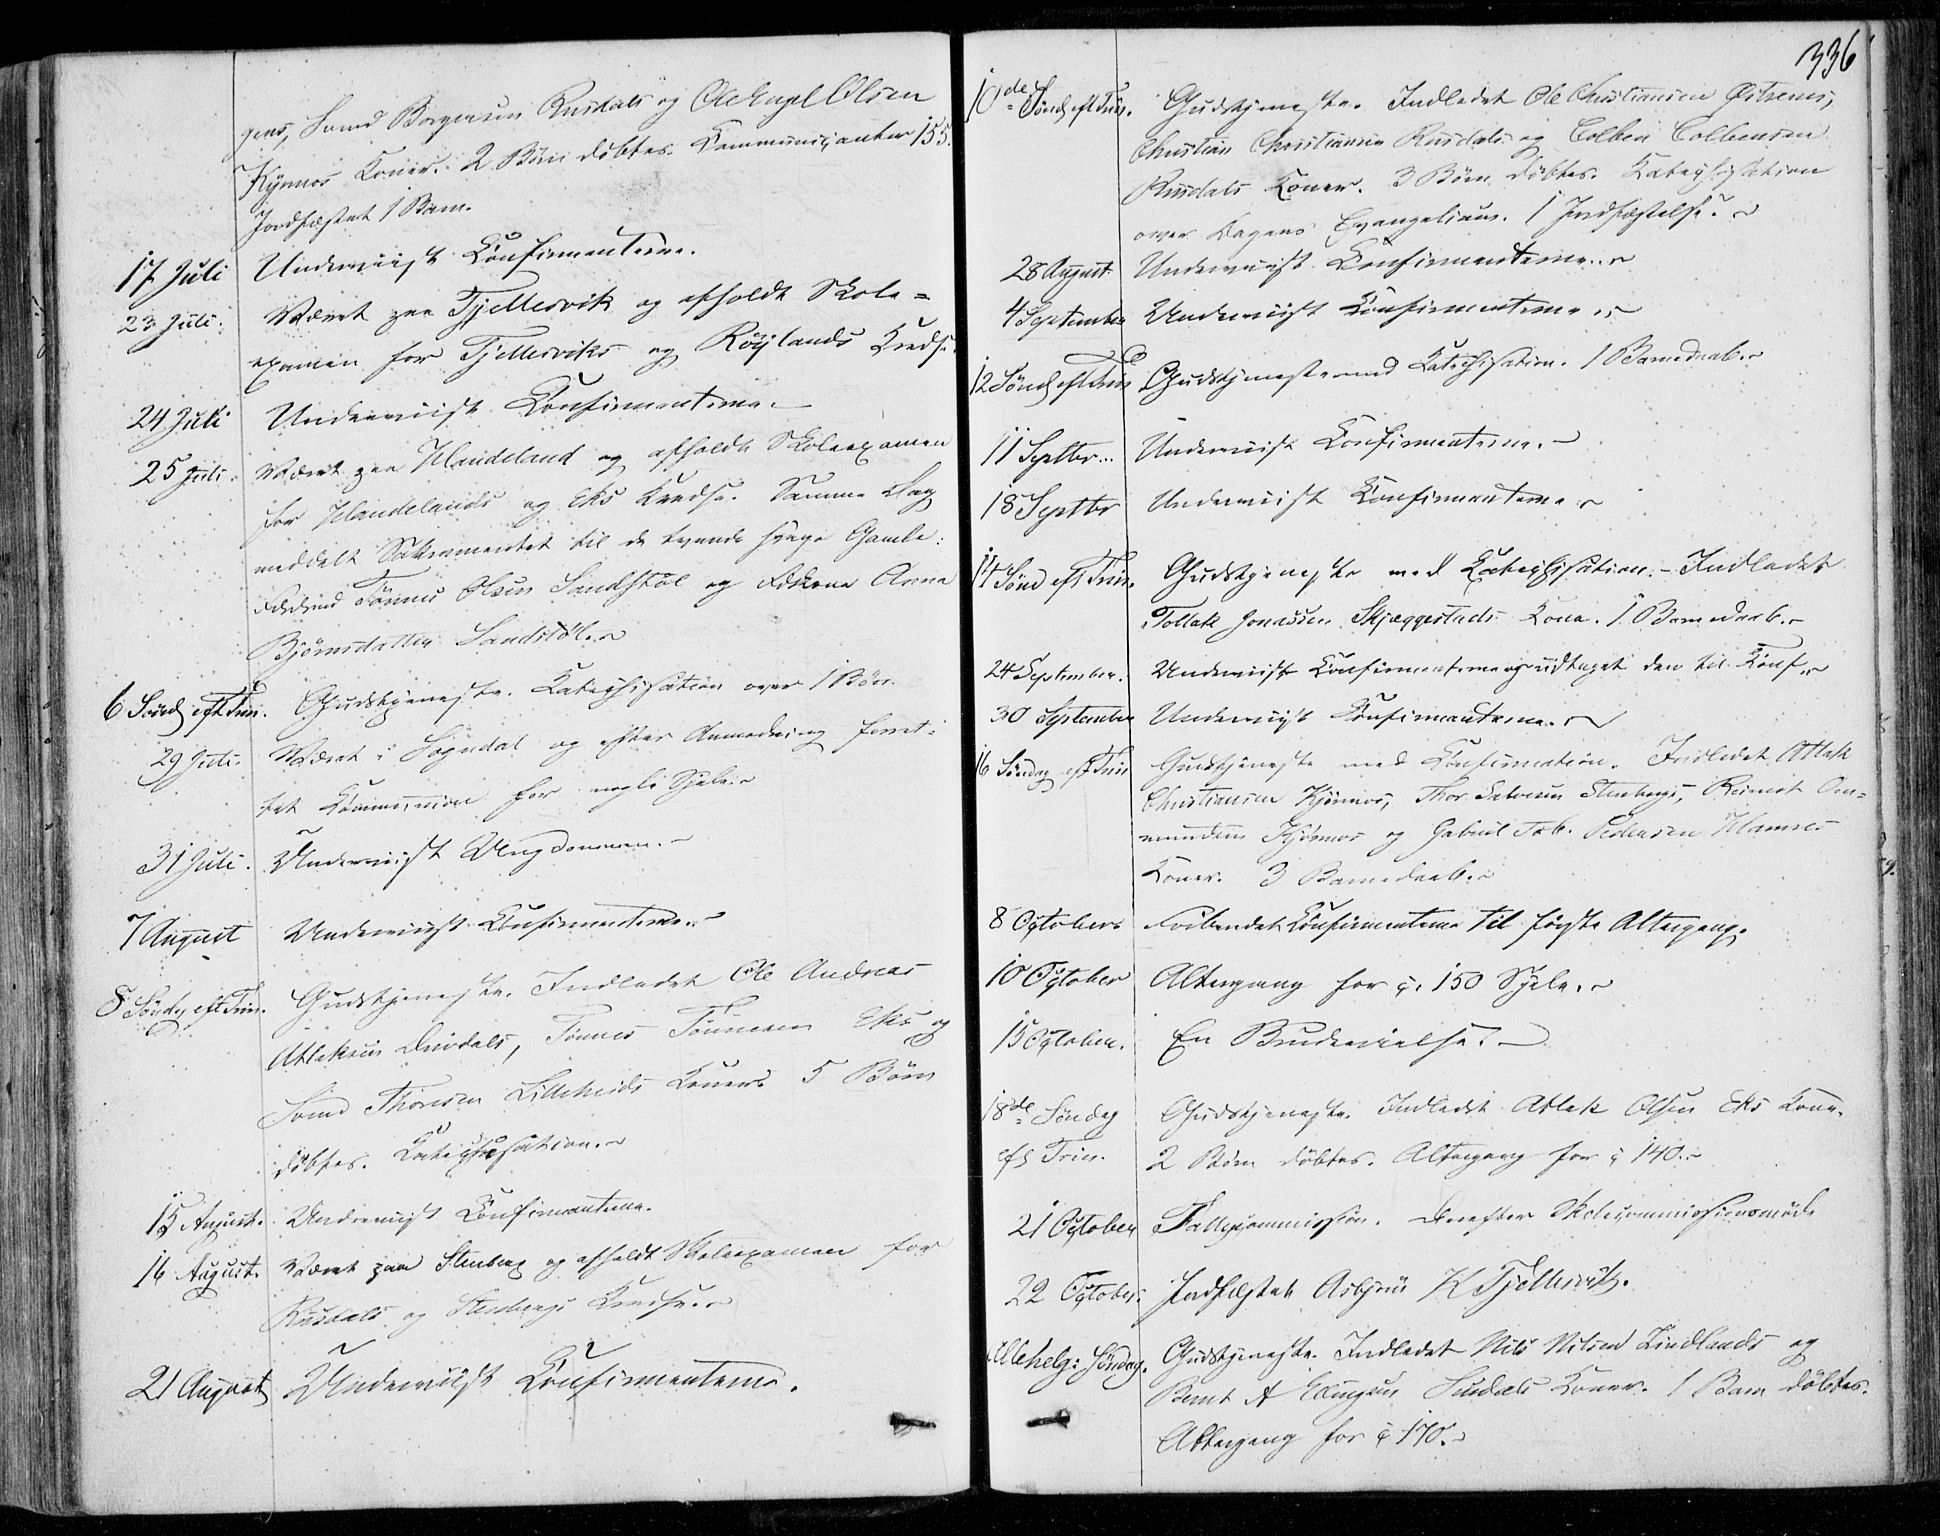 gens, Svend Börgesen Rusdals og Ole Engel Olsen
Kynnos Koner. 2 Börn döbtes. Communicanter 155.
Jordfæstet 1 Barn.
17 Juli Underviist Confirmanterne.
23 Juli. Været paa Fjellesvik og afholdt Skole=
examen for Fjellesviks og Röylands Kreds.
24 Juli Underviist Confirmanterne.
25 Juli. Været paa Haudeland og afholdt Skoleexamen
for Haudelands og Eks Kredse. Samme Dag
meddelt Sakramentet til de tvende syge Gamle:
Tönnes Olsen Sandstöl og Anna
Björnsdatter Sandstöl.
6 Sönd eft Trin. Gudstjeneste. Katechisation over 1 Bön.
29 Juli. Været i Sogndal og efter Anmodning forret=
tet Communion for nogle Sjele.
31 Juli. Underviist Ungdommen.
7 August Underviist Confirmanterne.
8 Söndg eft Trin. Gudstjeneste. Indledet Ole Andreas
Atleksen Duodals, Tönnes Tönnesen Eks og
Svend Thorsen Lilleheids Koner. 5 Börn
döbtes. Katechisation.
15 August. Underviist Confirmanterne.
16 August. Været paa Stenberg og afholdt Skoleexamen for
Rusdals og Stenbergs Kredse.
21 August Underviist Confirmanterne.
336
10de Sönd eft Trin. Gudstjeneste. Indledet Ole Christiansen Östrems,
Christian Christiansen Rusdals og Colben Colbensen
Rusdals Koner. 3 Börn döbtes. Katechisation
over Dagens Evangelium. 1 Jordfæstelse.
28 August Underviist Confirmanterne.
4 September Underviist Confirmanterne.
12 Sönd eft Trin Gudstjeneste med Katechisation. 1 Barnedaab.
11 Septbr. Underviist Confirmanterne.
18 Septbr Underviist Confirmanterne
14 Sönd eft Trin. Gudstjeneste med Katechisation. - Indledet
Tollak Jonassen Skjæggestads Kone. 1 Barnedaab.
24 September. Underviist Confirmanterne og udtaget dem til Conf.
30 September Underviist Confirmanterne.
16 Söndag eft Trin Gudstjeneste med Confirmation. Indledet Atlak
Christiansen Kjörmos, Thor Salvesen Stenbergs, Reinert Om=
mundsen Kjörmos og Gabriel Tob. Pedersen Hamres
Koner. 3 Barnedaab.
8 October Forberedet Confirmanterne til förste Altergang.
10 October Altergang for c. 150 Sjele.
15 October. En Brudevielse.
18de Söndag Gudstjeneste. Indledet Atlak Olsen Eks Kone.
eft Trin. 2 Börn döbtes. Altergang for c 140.
21 October Fattigcommission. Derefter Skolecommissionsmöde
22 October. Jordfæstet Asbjörn K Fjellesvik.
Allehelg: Söndag. Gudstjeneste. Indledet Nils Nilsen Lindlands og
Bernt A Koner. 1 Barn döbtes.
Altergang for c 170.